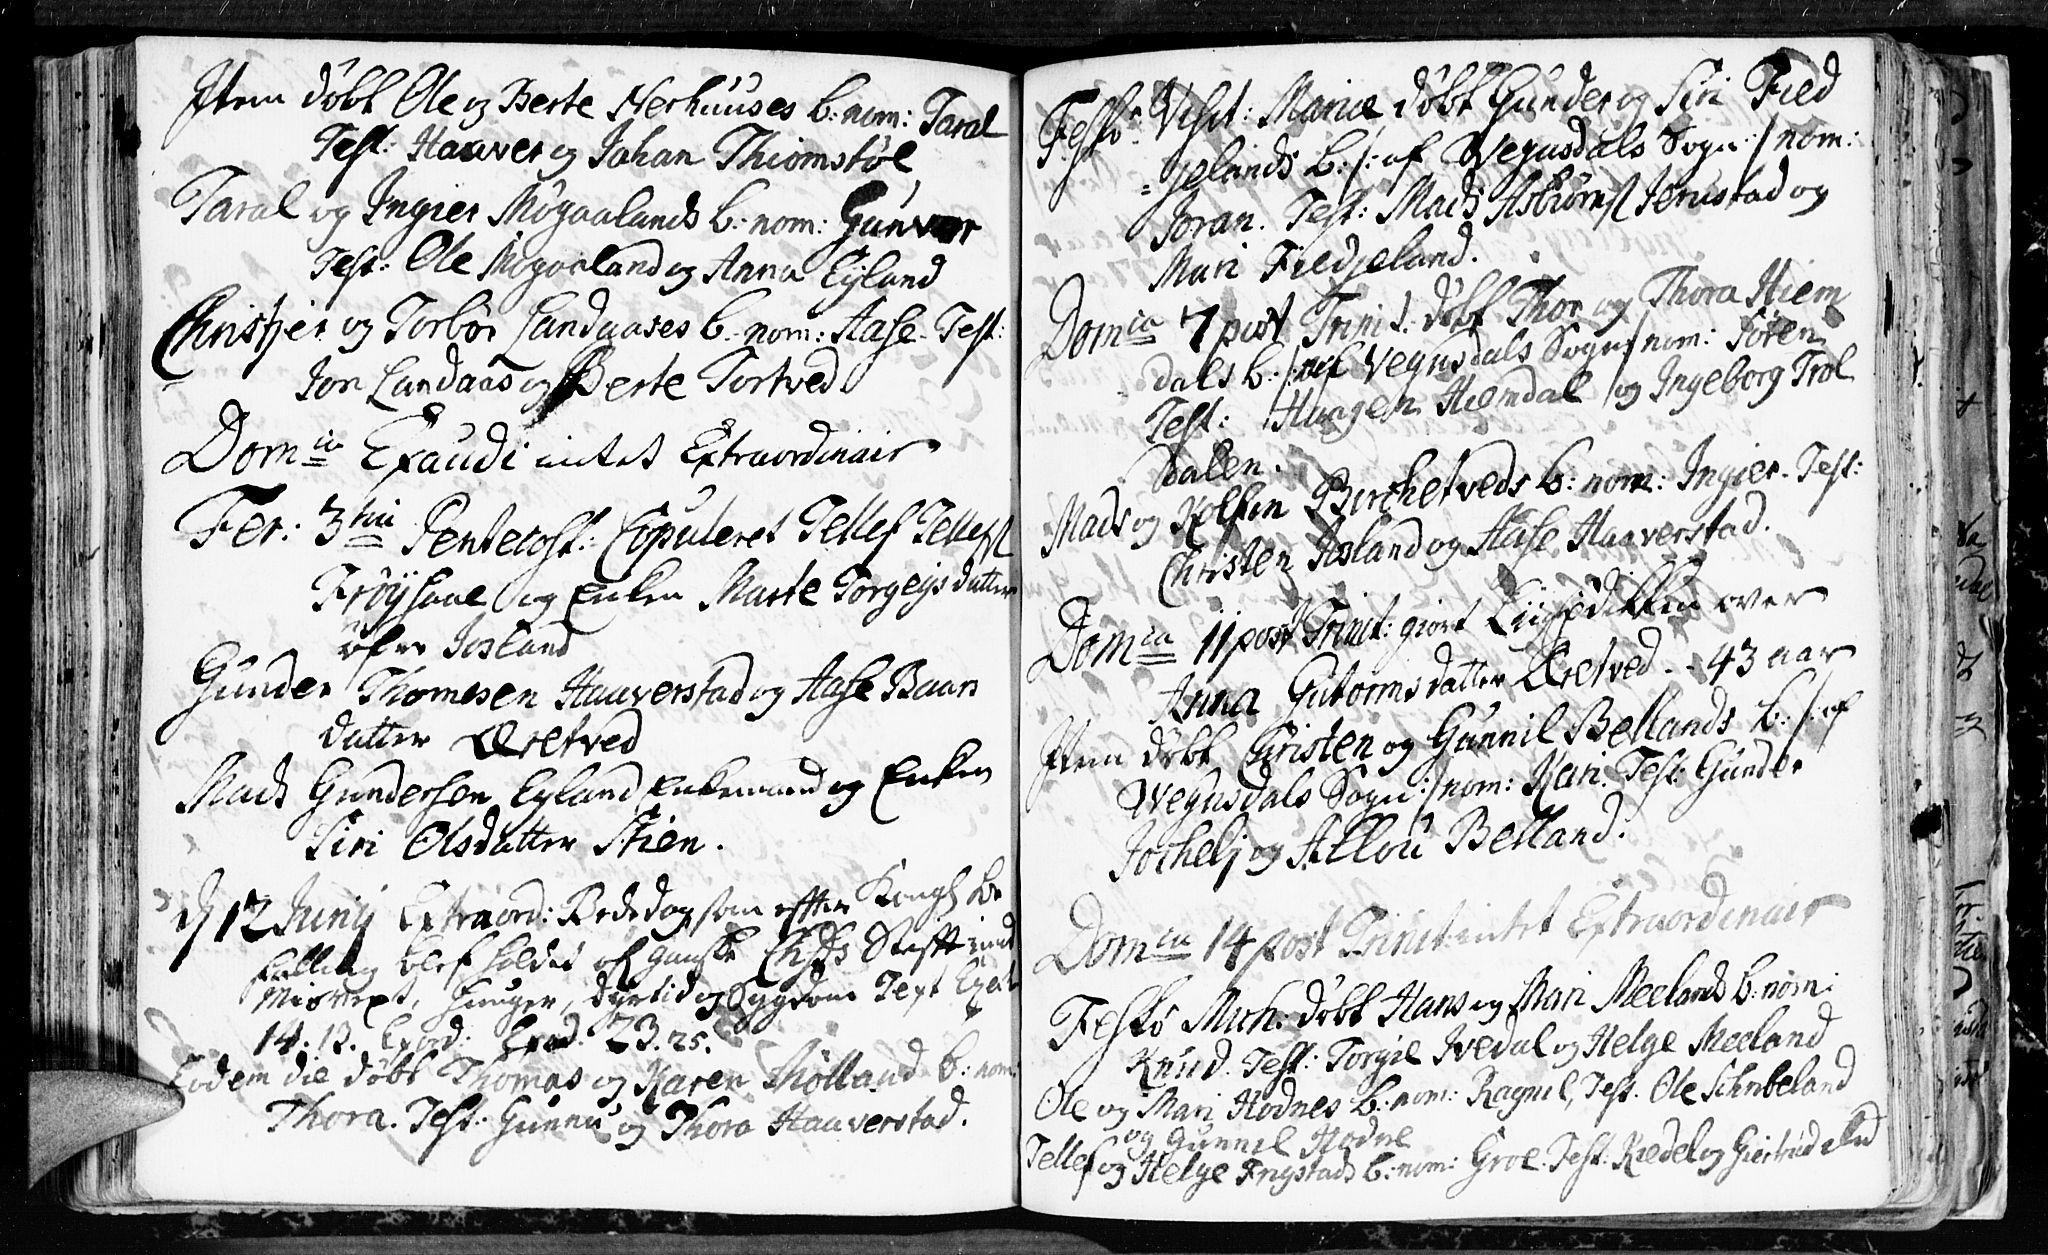 Item døbt Ole og Berte Nerhuuses b: nom: Taral
Test: Haaver og Johan Thiomstøl
Taral og Ingier Møgaalands b: nom: Gunvor
Test: Ole Møgaaland og Anna Eyland
Christjer og Torbor Landaases b: nom: Aase. Test:
Jon Landaas og Berte Tortved
Dom ca Exaudi intet Extraordinair
Fer: 3tia Pentecost: Copuleret Tellef Tellefs
Frøysaae og Enken Marte Torgeysdatter
Josland
Gunder Thomesen Haaverstad og Aase Baars
datter Øretved
Mads Gundersen Eyland Enkemand og Enken
Siri Olsdatter Stien.
d 12 Junij Extraord: Bededag som efter Kongl: be
falling blef holdet of gandske Chr.s: Stift imod
Misvext, hunger, dyrtid og Sygdom Text
14. 13. Exord: Exod. 23. 25.
Eodem die døbt Thomas og Karen Høllands b: nom:
Thora. Test: Gunnu og Thora Haaverstad.
Festo Visit: Mariæ døbt Gunder og Siri Fied
=jelands b: /: af Wegusdals Sogn :/ nom:
Joran. Test: Mads Asbiørns Jerustad og
Mari Fiedjeland.
Dom ca 7 post Trinit: døbt Thor og Thora Hiem
dals b: /: af Vegusdals Sogn / nom: Søren
Test: Haagen Hiemdal og Ingeborg Trol
dalen.
Mads og Kolfin Birchetveds b: nom: Ingier. Test:
Christen Josland og Aase Haaverstad.
Dom ca 11 post Trinit: giort Liigprediken over
Anna Gutormsdatter Øretved - 43 aar
Item døbt Christen og Gunnil Bellands b: /: af
Wegusdals Sogn :/ nom: Kari. Test: Gunder
Jorkelj og Allou Belland.
Dom ca 14 post Trinit: intet Extraordinair
Festo Mich: døbt Hans og Mari Meelands b: nom:
Knud. Test: Torgie Ivedal og Helge Meeland
Ole og Mari Hodnes b: nom: Ragnil, Test: Ole Schrebeland
og Gunnil Hodne
Tellef og Helge Frystads b: nom: Groe. Test: Kiedel og Giertrud